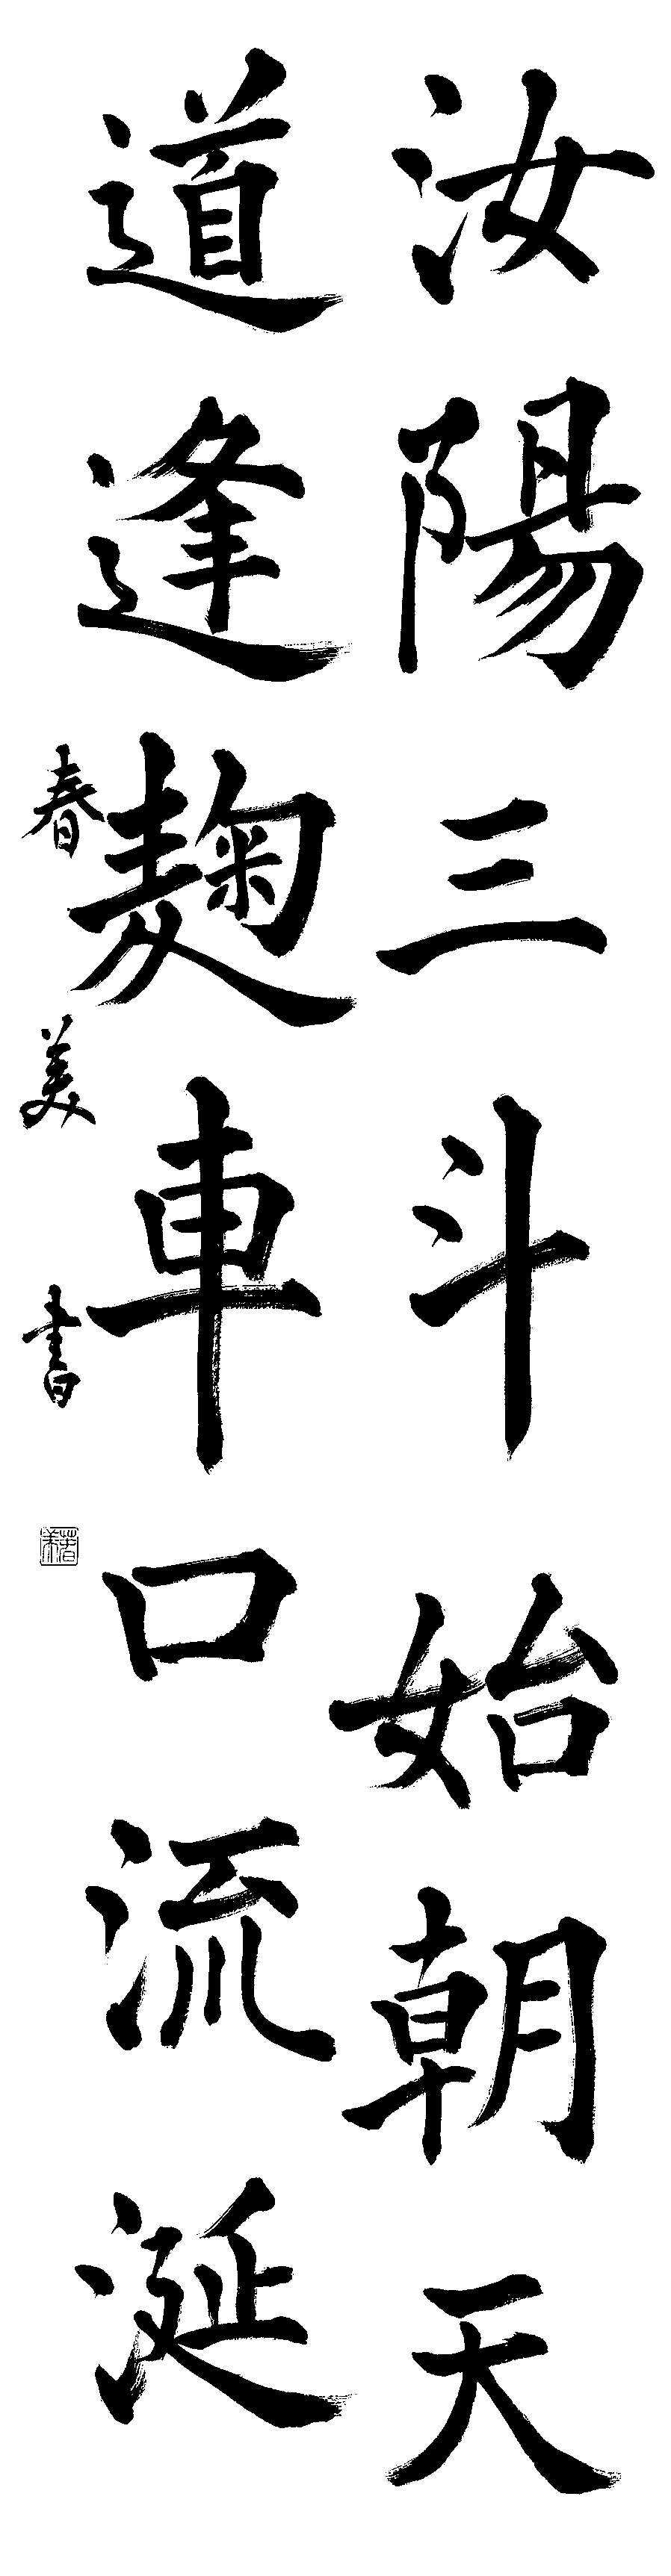 汝陽三斗始朝天
道逢麹車口流涎
春美書